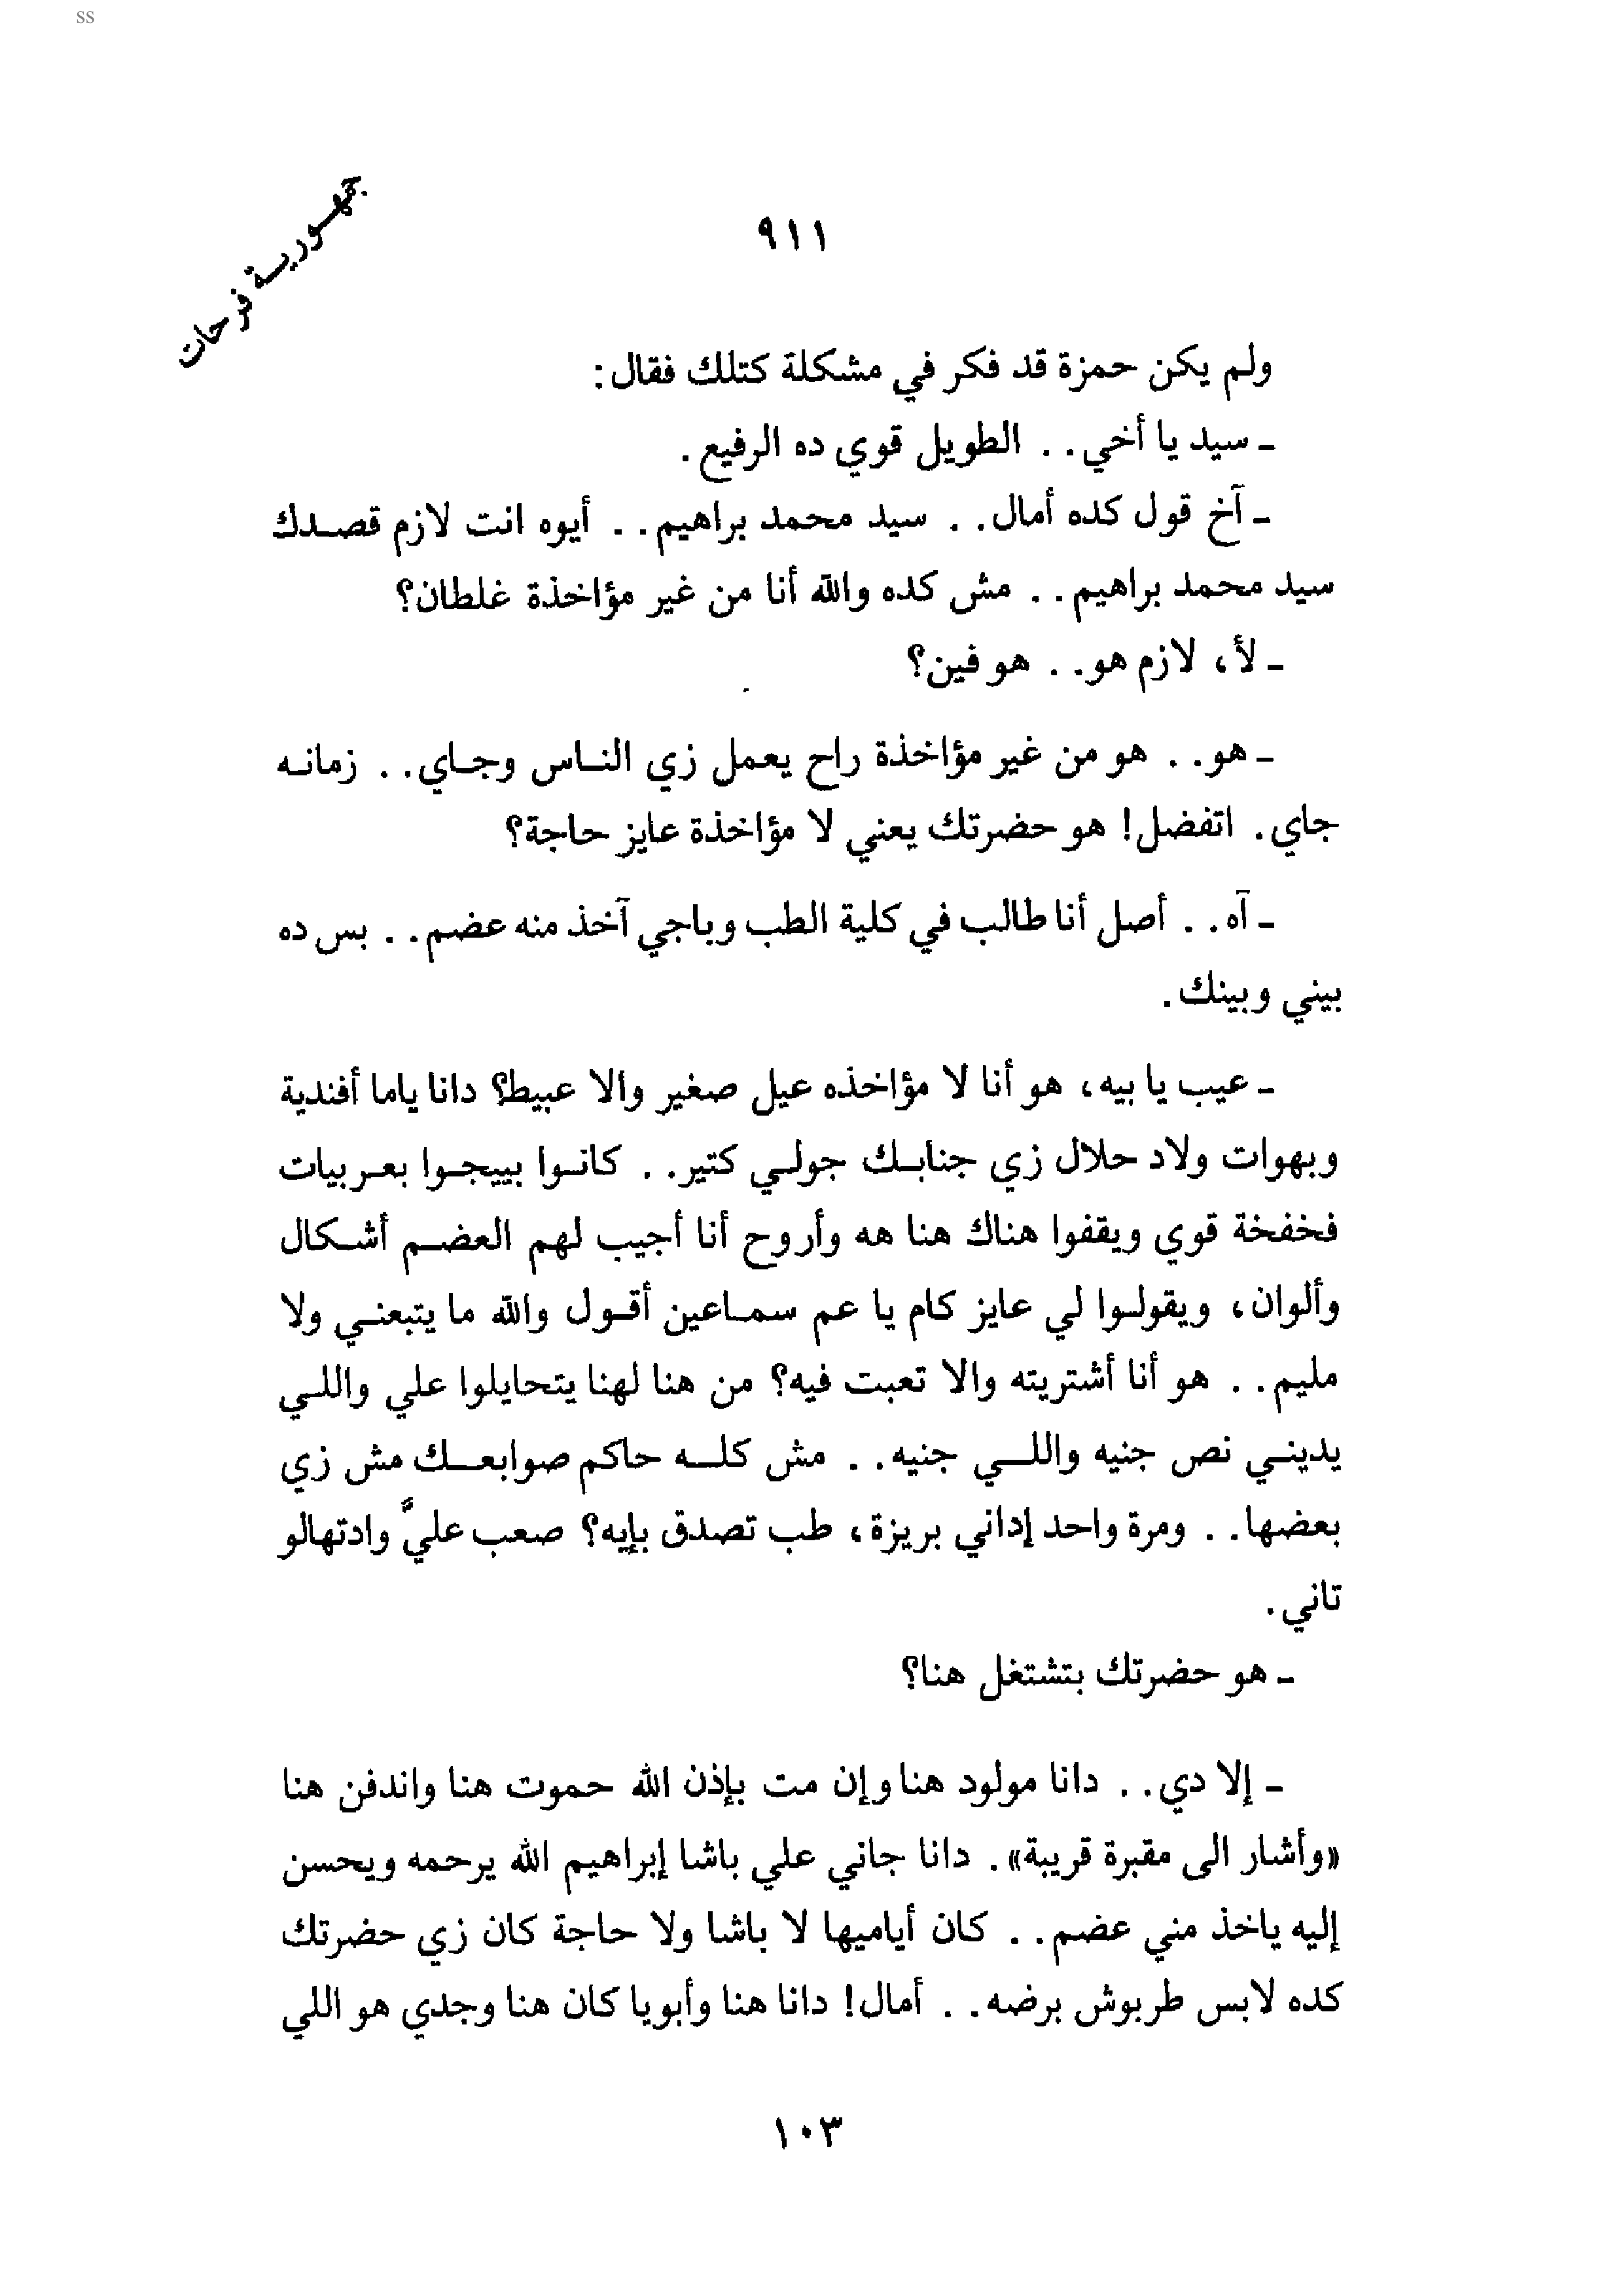 ss
جمهورية فرحات
٩١١
ولم يكن حمزة قد فكر في مشكلة كتلك فقال:
ـ سيد يا أخي.. الطويل قوي ده الرفيع.
ـ آخ قول كده أمال.. سيد محمد براهيم.. أيوه انت لازم قصدك
سيد محمد براهيم.. مش كده والله أنا من غير مؤاخذة غلطان؟
ـ لأ، لازم هو.. هو فين؟
ـ هو.. هو من غير مؤاخذة راح يعمل زي الناس وجاي.. زمانه
جاي. اتفضل! هو حضرتك يعني لا مؤاخذة عايز حاجة؟
ـ آه.. أصل أنا طالب في كلية الطب وباجي آخذ منه عضم.. بس ده
بيني وبينك.
ـ عيب يا بيه، هو أنا لا مؤاخذه عيل صغير والا عبيط؟ دانا ياما أفندية
وبهوات ولاد حلال زي جنابك جولي كتير.. كانوا بييجوا بعربيات
فخفخة قوي ويقفوا هناك هنا هه وأروح أنا أجيب لهم العضم أشكال
وألوان، ويقولوا لي عايز كام يا عم سماعين أقول والله ما يتبعني ولا
مليم.. هو أنا أشتريته والا تعبت فيه؟ من هنا لهنا يتحايلوا علي واللي
يديني نص جنيه واللي جنيه.. مش كله حاكم صوابعك مش زي
بعضها.. ومرة واحد إداني بريزة، طب تصدق بإيه؟ صعب عليَّ وادتهالو
تاني.
ـ هو حضرتك بتشتغل هنا؟
ـ إلا دي.. دانا مولود هنا وإن مت بإذن الله حموت هنا واندفن هنا
«وأشار الى مقبرة قريبة». دانا جاني علي باشا إبراهيم الله يرحمه ويحسن
إليه ياخذ مني عضم.. كان أياميها لا باشا ولا حاجة كان زي حضرتك
كده لابس طربوش برضه.. أمال! دانا هنا وأبويا كان هنا وجدي هو اللي
١٠٣